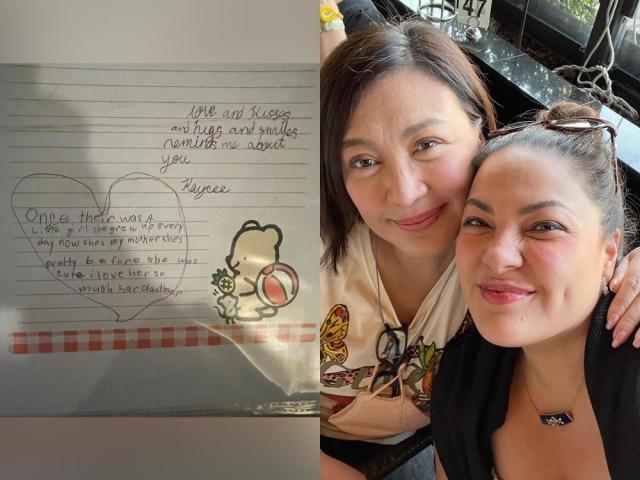 love and kisses
and hugs and smiles
reminds me about
you
Kaycee
Once their was A
Little girl she grew up every
day now shes my mother shes
pretty before she was
cute i love her so
much her daughter
47